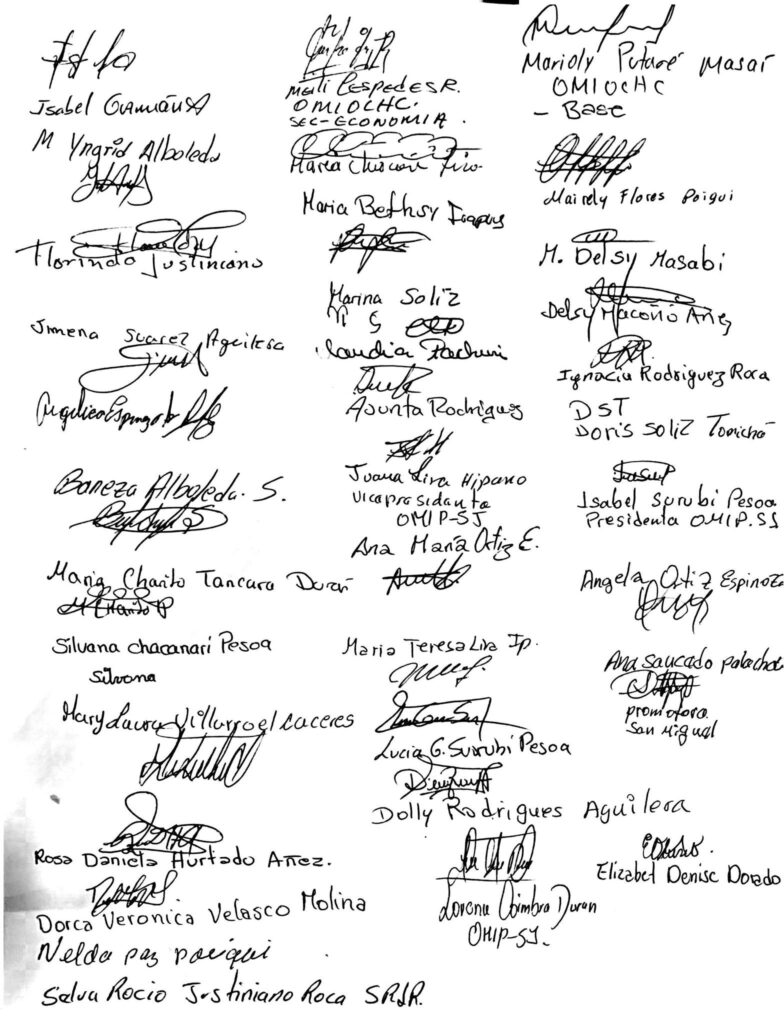 Isabel Guamán A
M Yngrid Alboleda
Florinda Justiniano
Jimena Suarez Aguilera
Angelica Espinoza
Baneza Alboleda. S.
Maria Charito Tancara Durán
M Charito
Silvana chacanari Pesoa
Silvana
Mary Laura Villarroel Caceres
Rosa Daniela Hurtado Añez.
Dorca Veronica Velasco Molina
Nelda paz poiqui
Selva Rocio Justiniano Roca SRJR.
Meli Cespedes R.
OMIOCHC.
SEC-ECONOMIA.
Maria Chiscani
Maria Bethsy
Marina Soliz
M S
Claudia Pachuri
Asunta Rodriguez
Juana Lira Hipamo
vicaprasidanta
OMIP-SJ
Ana María Ortiz E.
Maria Teresa Lira Ip.
Lucia G. Surubi Pesoa
Dolly Rodrigues Aguilera
Lorena Coimbra Duran
OMIP-SJ.
Marioly Putaré Masaí
OMIOCHC
- Base
Mairely Flores Poiqui
M. Delsy Masabi
Delsy Macoño Añez
Ignacia Rodriguez Roca
DST
Doris Soliz Tomichá
Isabel Surubi Pesoa
Presidenta OMIP.SJ
Angela Ortiz Espinoza
Ana Saucado
promotora
San Miguel
Elizabel Denise Dorado